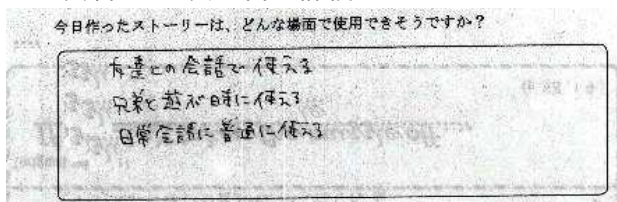 今日作ったストーリーは、どんな場面で使用できそうですか?
友達との会話で使える
兄弟と遊ぶ時に使える
日常会話に普通に使える